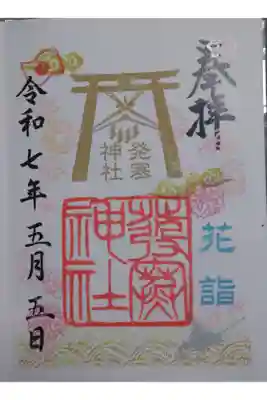 奉拝
花詣
発寒
神社
発寒神社
令和七年五月五日